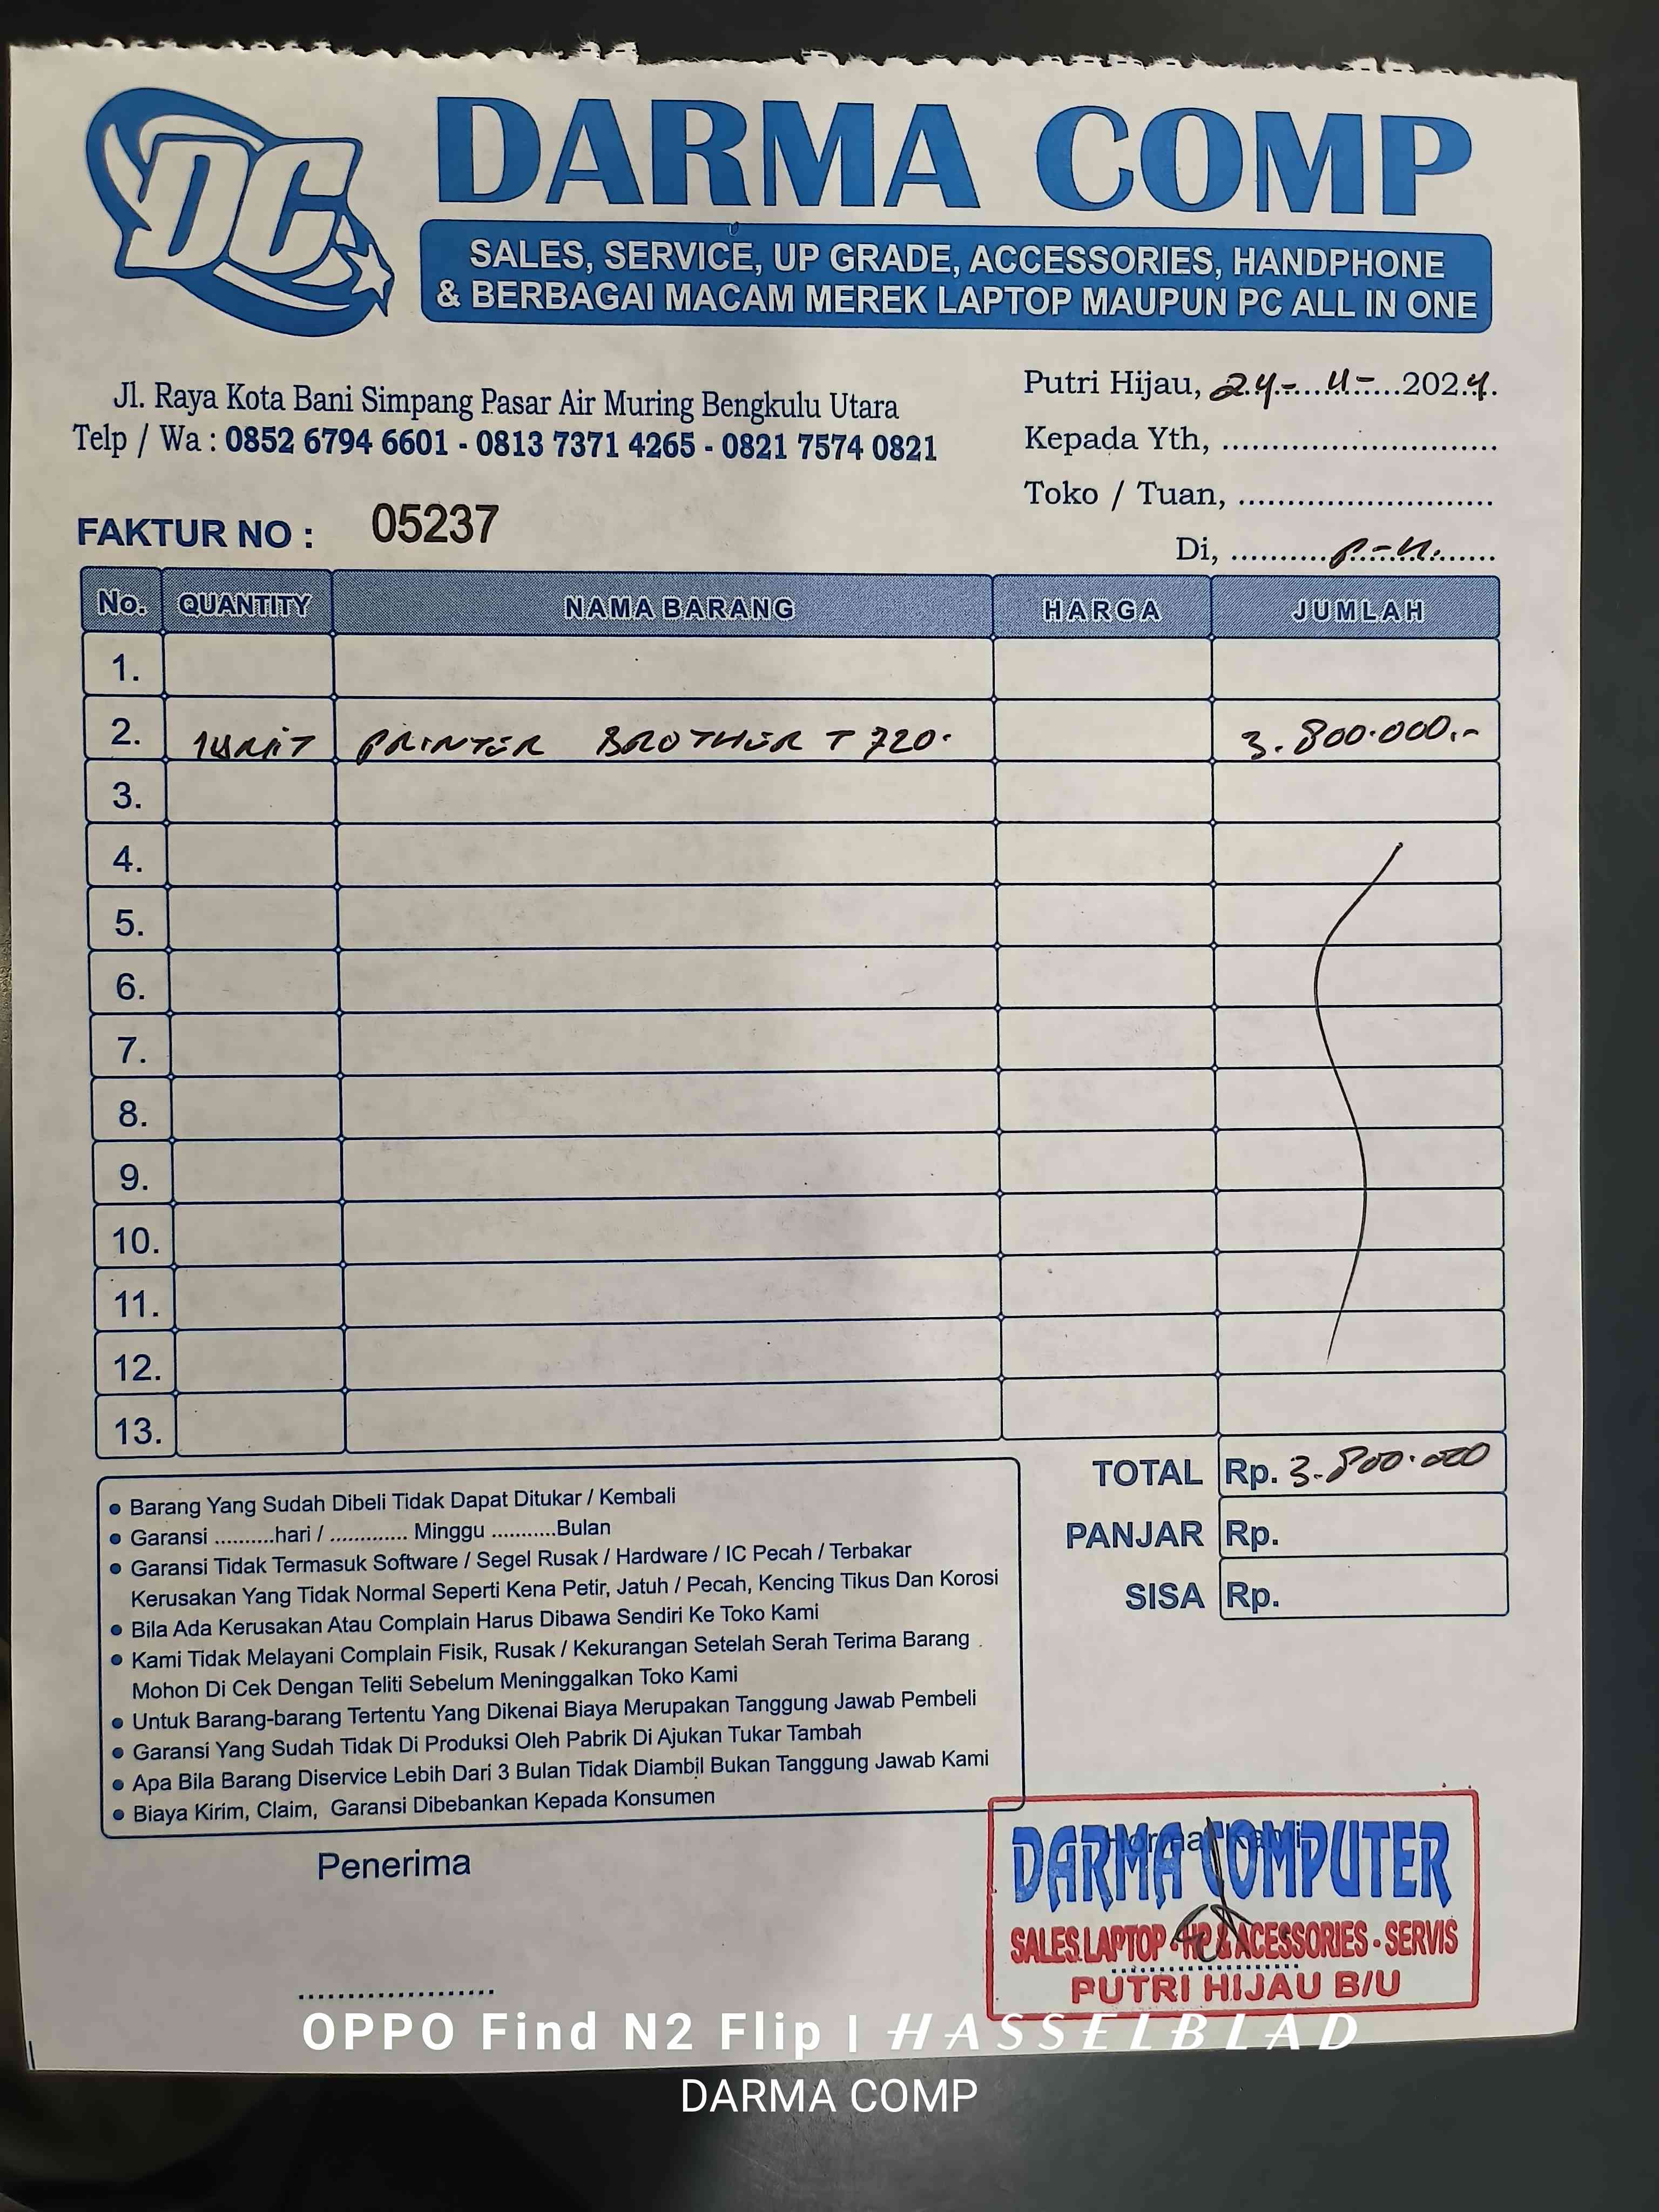 DC
DARMA COMP
SALES, SERVICE, UP GRADE, ACCESSORIES, HANDPHONE
& BERBAGAI MACAM MEREK LAPTOP MAUPUN PC ALL IN ONE
Jl. Raya Kota Bani Simpang Pasar Air Muring Bengkulu Utara
Telp / Wa : 0852 6794 6601 - 0813 7371 4265 - 0821 7574 0821
Putri Hijau, 24- 11- 2024.
Kepada Yth, ............................
Toko / Tuan, ..........................
FAKTUR NO : 05237
Di, .......... P-H. .......
No. QUANTITY NAMA BARANG HARGA JUMLAH
1.
2. 1 UNIT PRINTER BROTHER T 720. 3.800.000.-
3.
4.
5.
6.
7.
8.
9.
10.
11.
12.
13.
TOTAL Rp. 3.800.000
PANJAR Rp.
SISA Rp.
• Barang Yang Sudah Dibeli Tidak Dapat Ditukar / Kembali
• Garansi ..........hari / ............. Minggu ...........Bulan
• Garansi Tidak Termasuk Software / Segel Rusak / Hardware / IC Pecah / Terbakar
Kerusakan Yang Tidak Normal Seperti Kena Petir, Jatuh / Pecah, Kencing Tikus Dan Korosi
• Bila Ada Kerusakan Atau Complain Harus Dibawa Sendiri Ke Toko Kami
• Kami Tidak Melayani Complain Fisik, Rusak / Kekurangan Setelah Serah Terima Barang .
Mohon Di Cek Dengan Teliti Sebelum Meninggalkan Toko Kami
• Untuk Barang-barang Tertentu Yang Dikenai Biaya Merupakan Tanggung Jawab Pembeli
• Garansi Yang Sudah Tidak Di Produksi Oleh Pabrik Di Ajukan Tukar Tambah
• Apa Bila Barang Diservice Lebih Dari 3 Bulan Tidak Diambil Bukan Tanggung Jawab Kami
• Biaya Kirim, Claim, Garansi Dibebankan Kepada Konsumen
Penerima
Hormat Kami
DARMA COMPUTER
SALES LAPTOP - HP & ACESSORIES - SERVIS
PUTRI HIJAU B/U
OPPO Find N2 Flip | HASSELBLAD
DARMA COMP